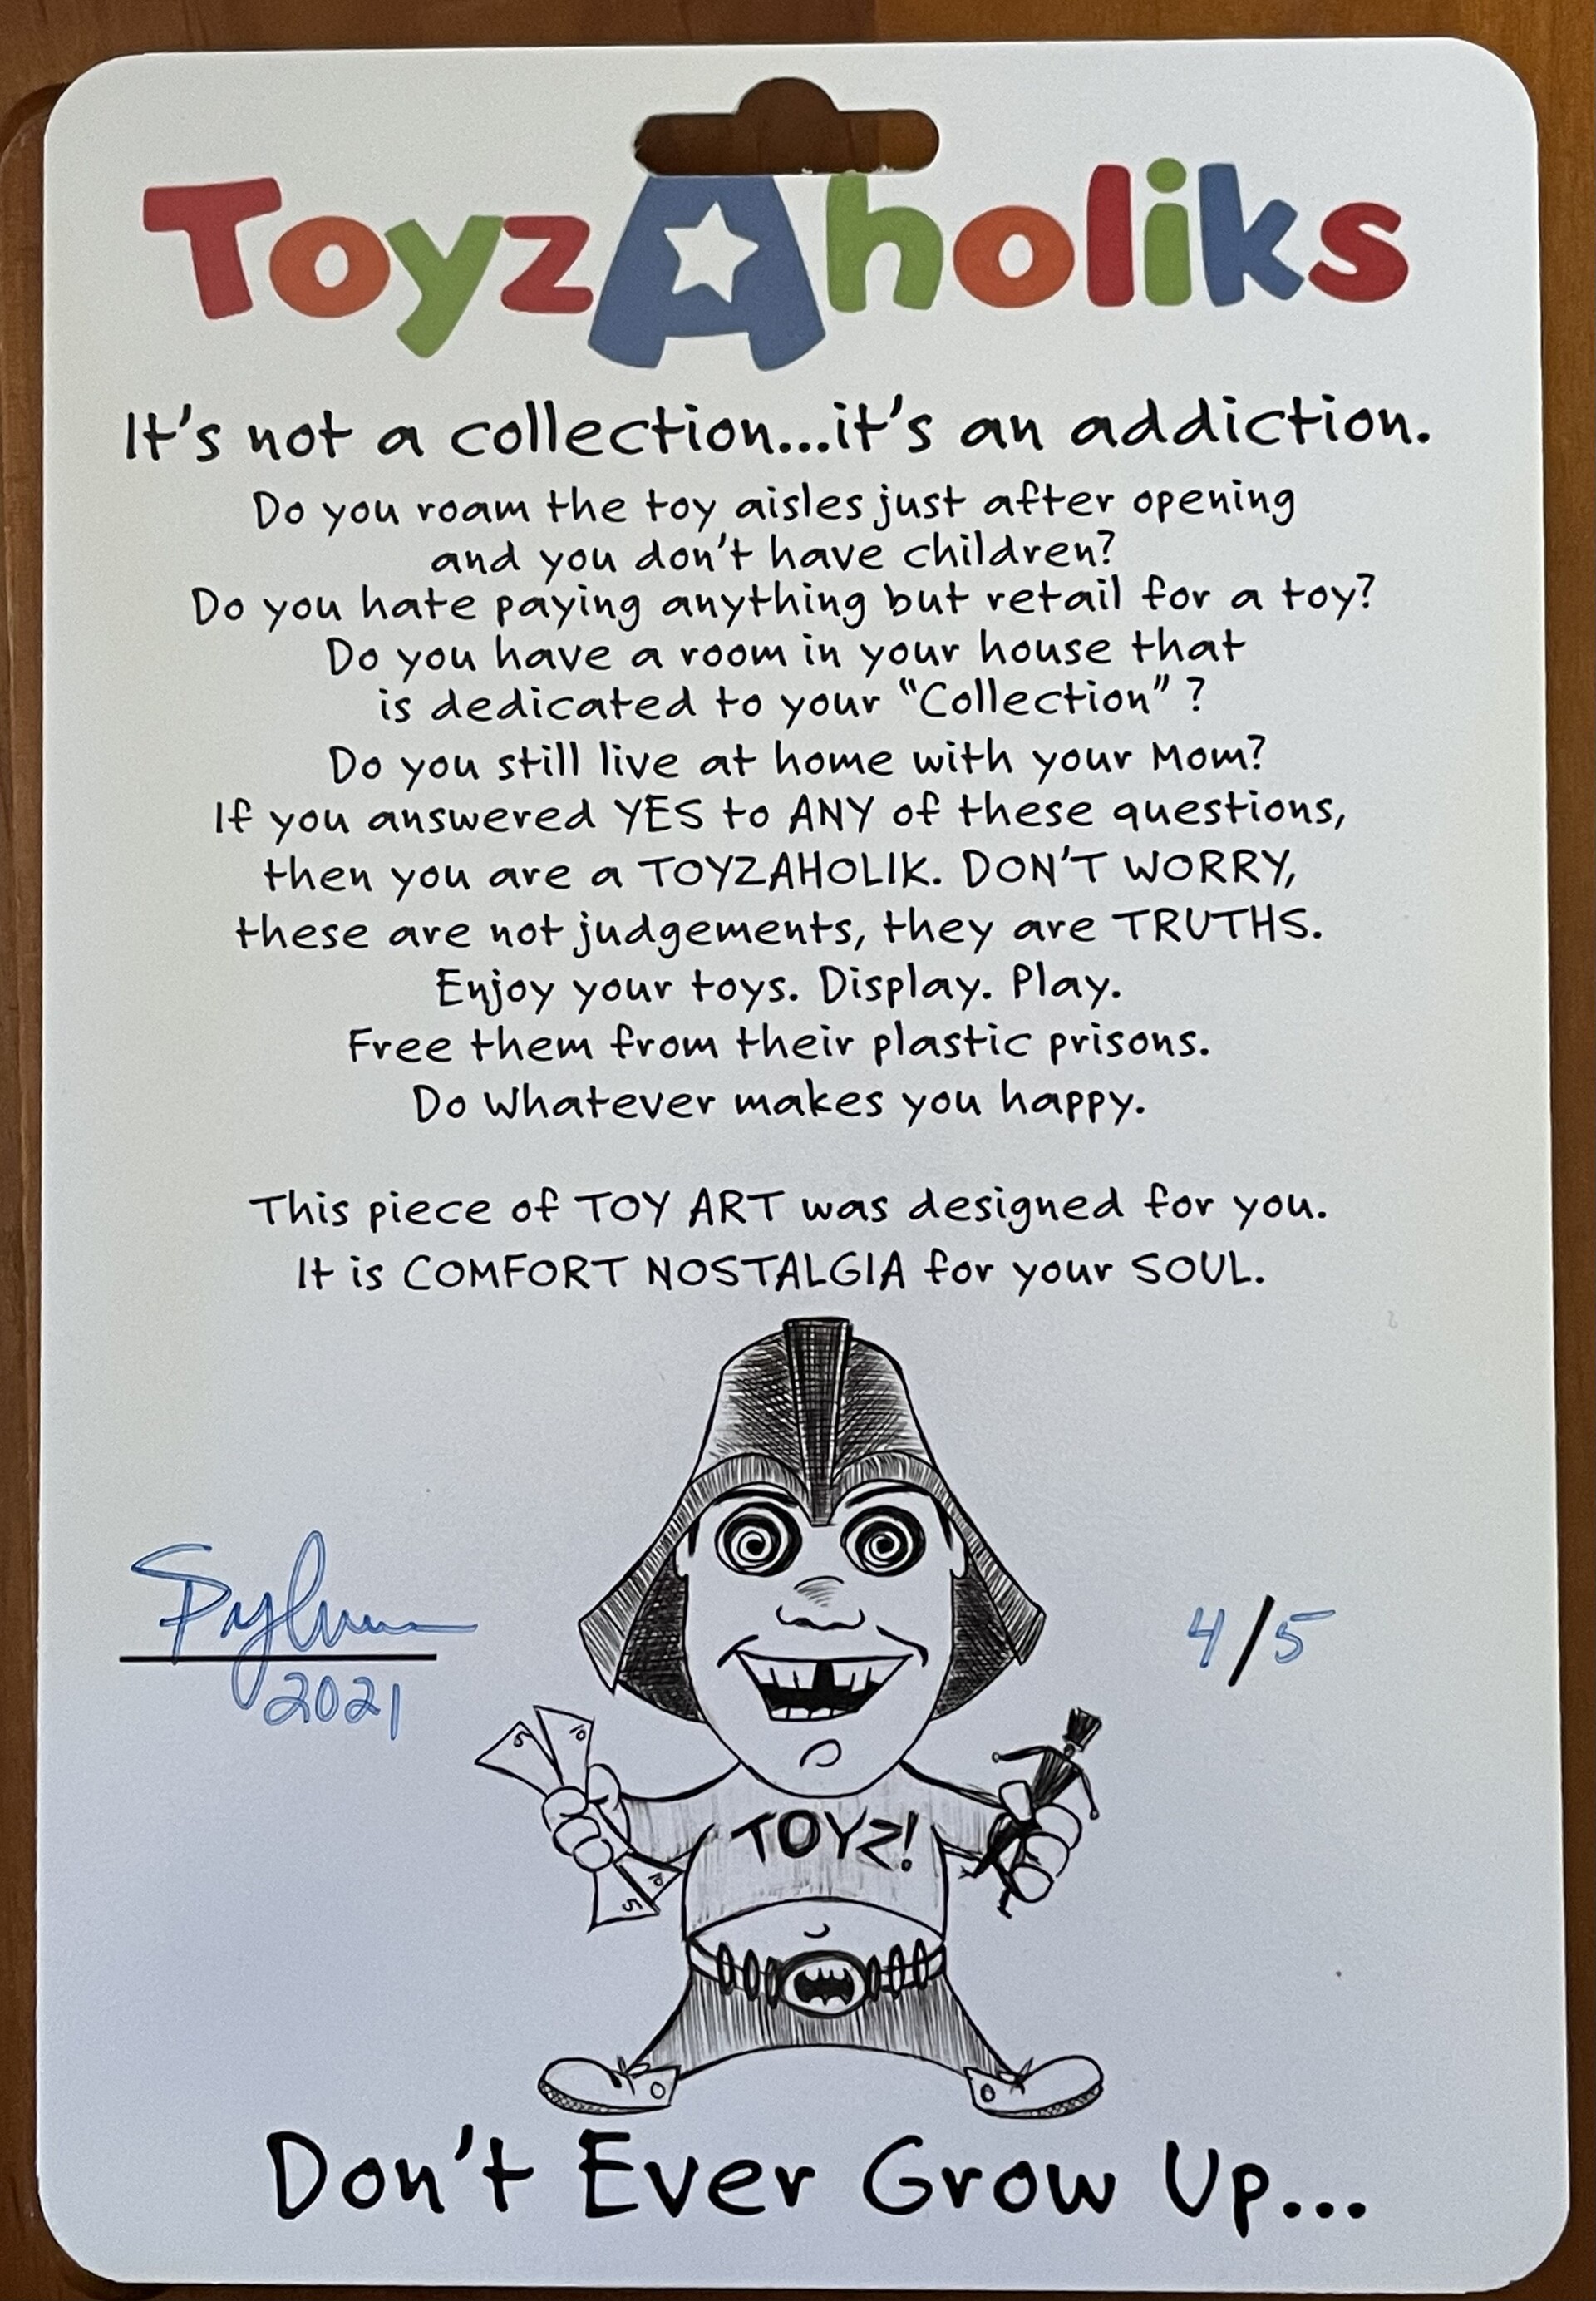 ToyzAholiks
It's not a collection...it's an addiction.
Do you roam the toy aisles just after opening
and you don't have children?
Do you hate paying anything but retail for a toy?
Do you have a room in your house that
is dedicated to your "Collection" ?
Do you still live at home with your Mom?
If you answered YES to ANY of these questions,
then you are a TOYZAHOLIK. DON'T WORRY,
these are not judgements, they are TRUTHS.
Enjoy your toys. Display. Play.
Free them from their plastic prisons.
Do Whatever makes you happy.
This piece of TOY ART was designed for you.
It is COMFORT NOSTALGIA for your SOUL.
2021
4/5
5 10
TOYZ!
5 10
Don't Ever Grow Up...